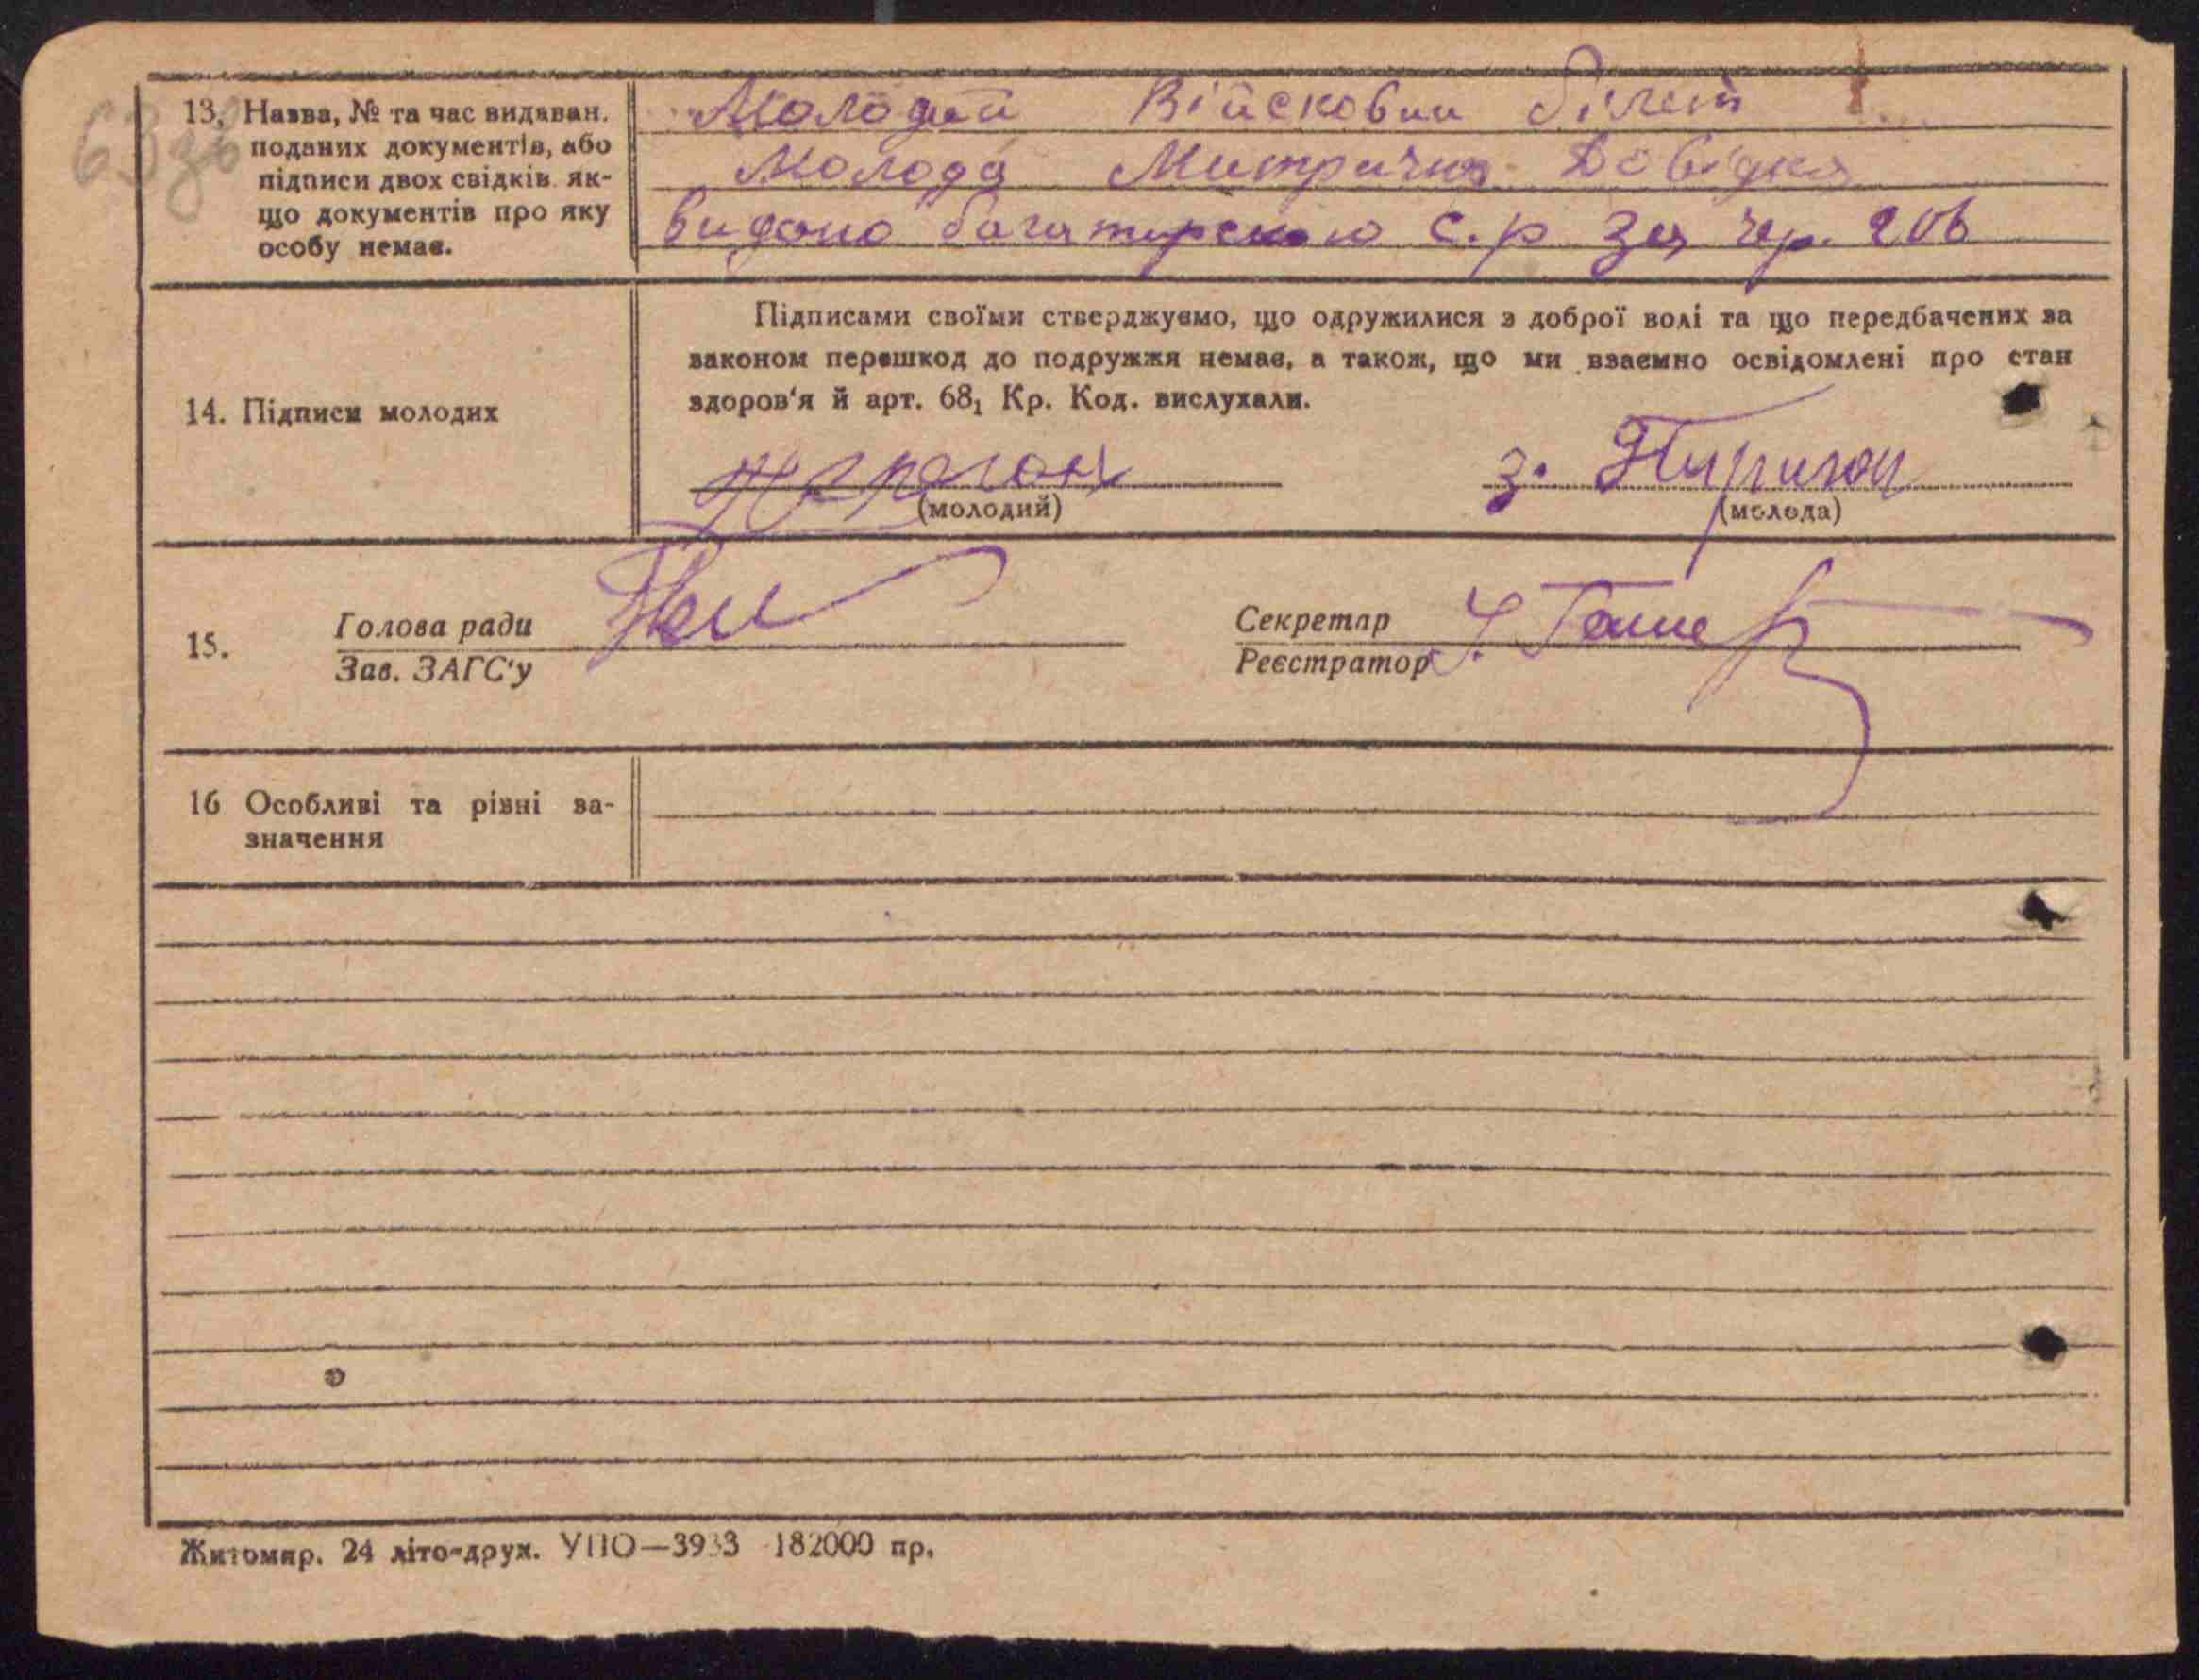 63 зв
13. Назва, № та час видаван.
поданих документів, або
підписи двох свідків як-
що документів про яку
особу немає.
Молодий Війсковии білет
Молода Митрична Довідка
видано богатирскою с.р за чр. 206
Підписами своїми стверджуємо, що одружилися з доброї волі та що передбачених за
законом перешкод до подружжя немає, а також, що ми взаємно освідомлені про стан
здоров'я й арт. 68₁ Кр. Код. вислухали.
14. Підписи молодих
за
(молодий) (молода)
15. Голова ради
Зав. ЗАГС'у
Секретар
Реєстратор
16 Особливі та різні за-
значення
Житомир. 24 літо-друк. УПО—3933 182000 пр.